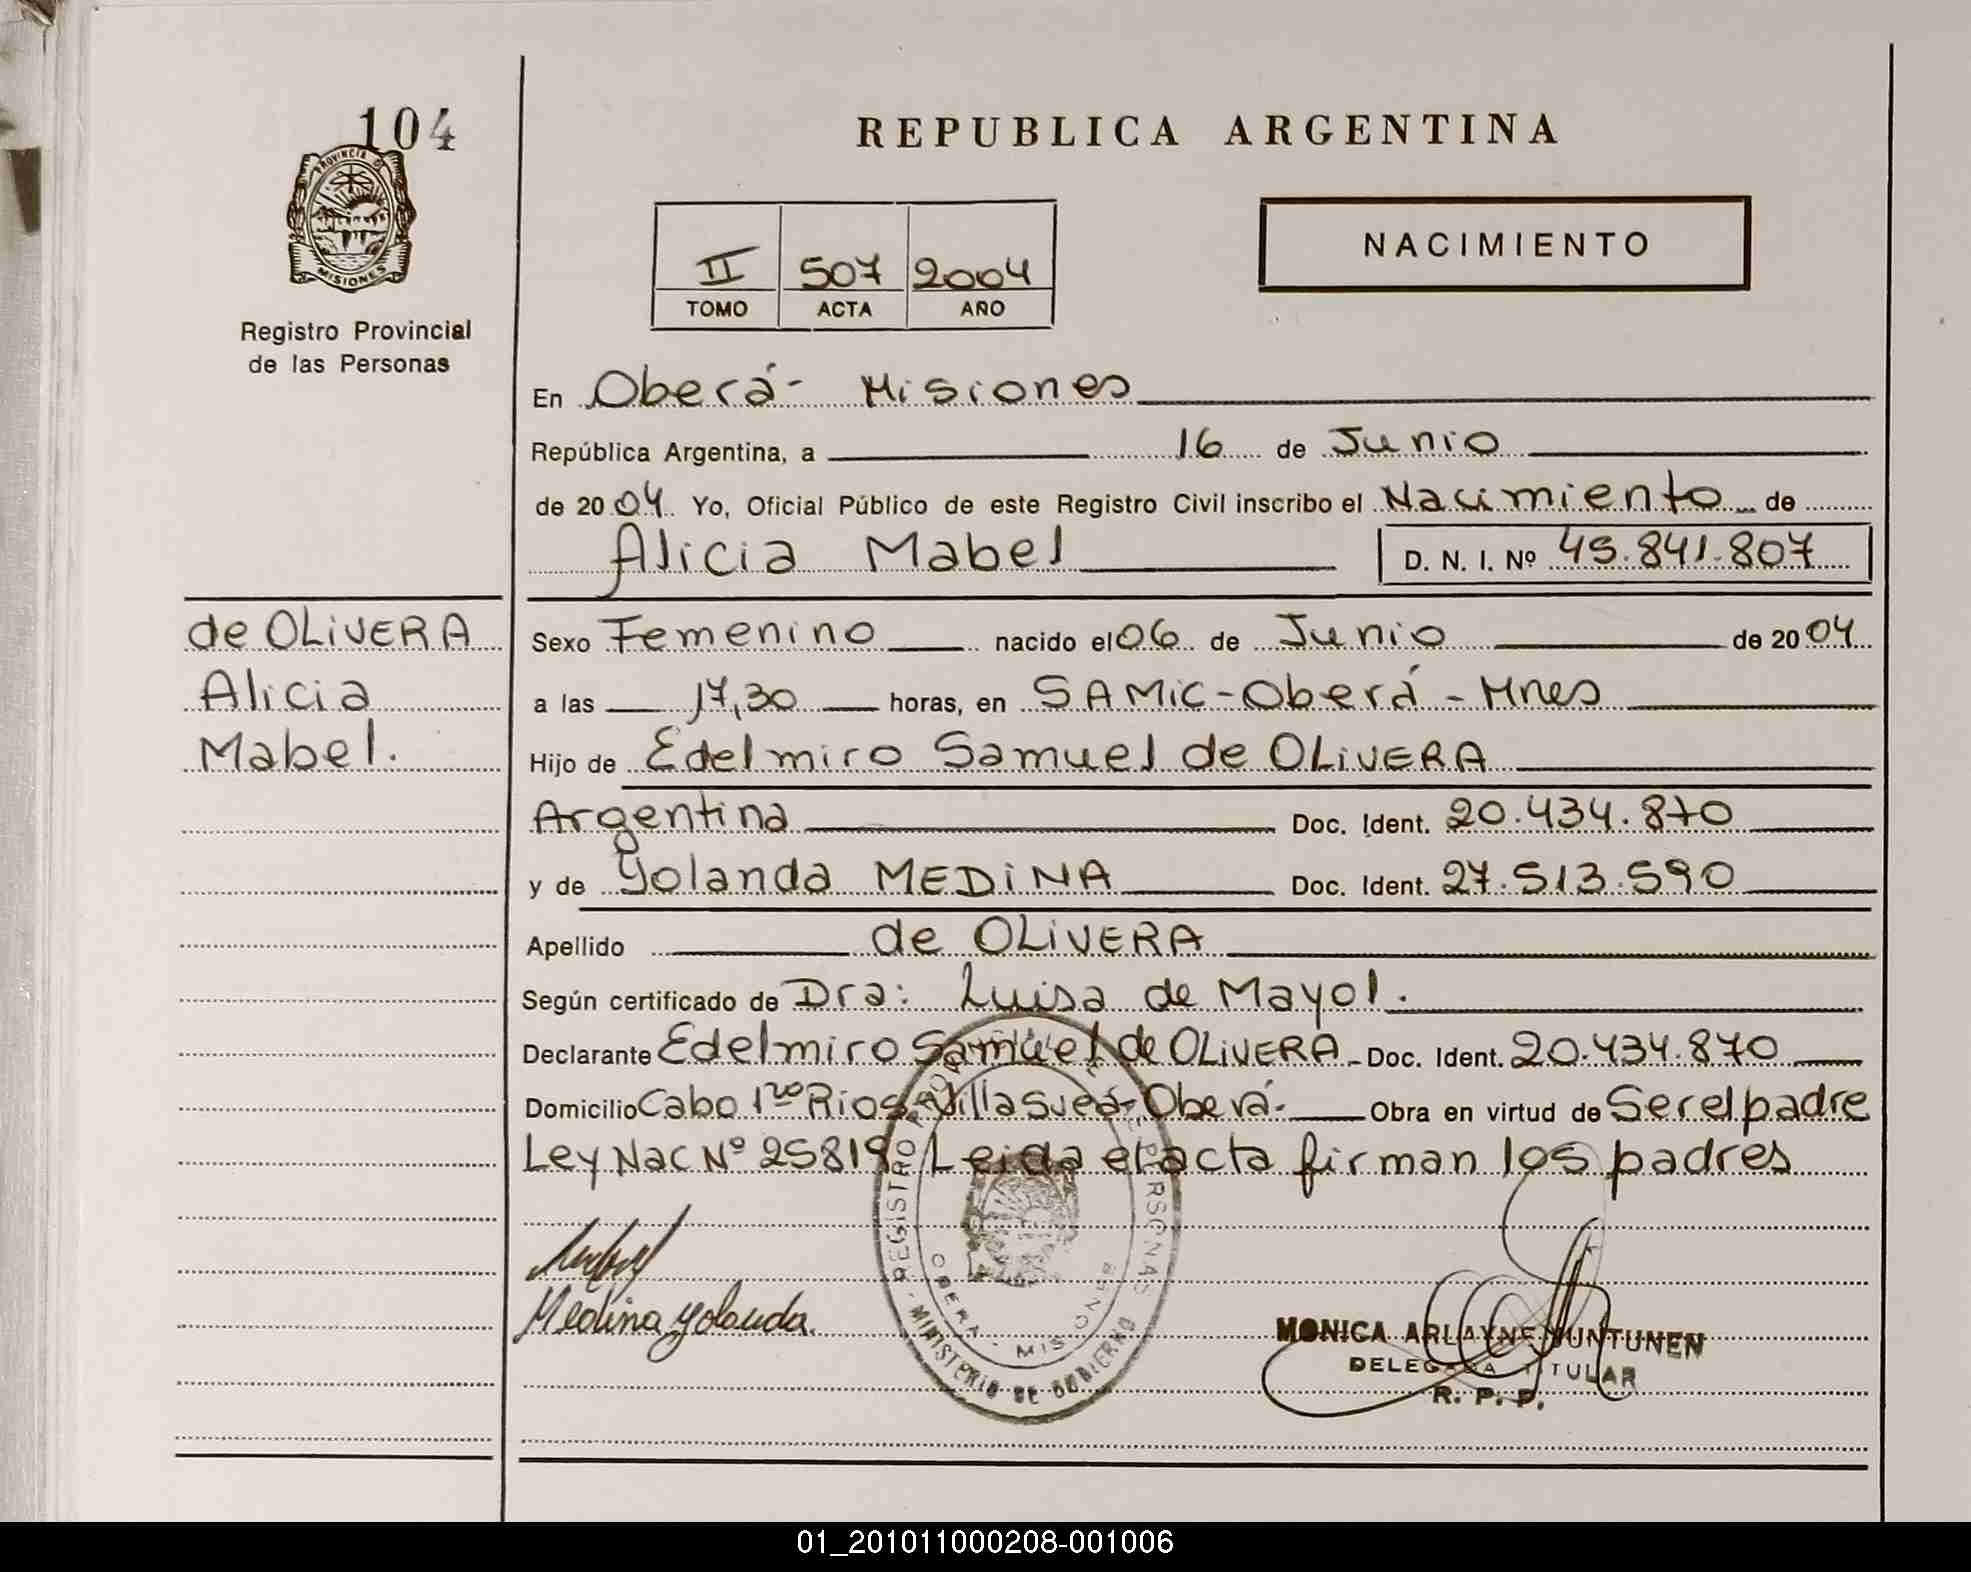 104
PROVINCIA DE
MISIONES
Registro Provincial
de las Personas
REPUBLICA ARGENTINA
II 507 2004
TOMO ACTA AÑO
NACIMIENTO
En Oberá- Misiones
República Argentina, a 16 de Junio
de 2004 Yo, Oficial Público de este Registro Civil inscribo el Nacimiento de
Alicia Mabel D. N. I. Nº 45.841.807
de OLIVERA
Alicia
Mabel.
Sexo Femenino nacido el 06 de Junio de 2004
a las 17,30 horas, en SAMIC-Oberá-Mnes
Hijo de Edelmiro Samuel de OLIVERA
Argentina Doc. Ident. 20.434.870
y de Yolanda MEDINA Doc. Ident. 27.513.590
Apellido de OLIVERA
Según certificado de Dra: Luisa de Mayol.
Declarante Edelmiro Samuel de OLIVERA- Doc. Ident. 20.434.870
Domicilio Cabo 1ro Rios-Villa Oberá- Obra en virtud de Ser el padre
Ley Nac Nº 25819 Leida el acta firman los padres
Medina Yolanda.
REGISTRO PERSONAS
OBERA - MISIONES
MINISTERIO DE GOBIERNO
MONICA ARLAYNE
DELEGADA TITULAR
R. P. P.
01_201011000208-001006